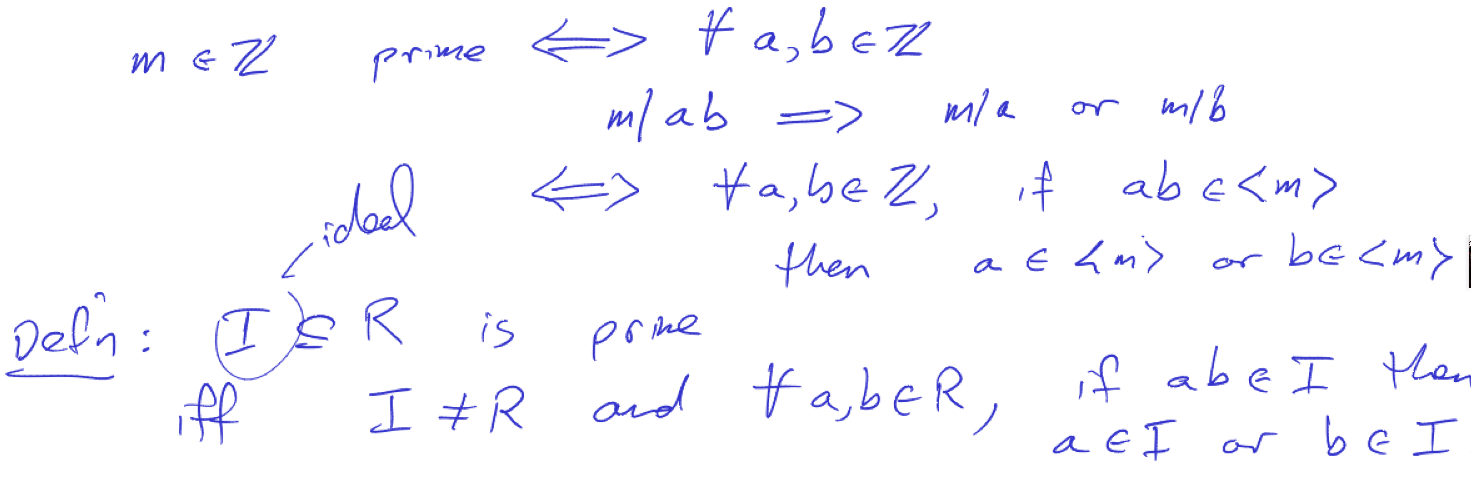 m ∈ ℤ prime ⟺ ∀ a, b ∈ ℤ
m | ab ⟹ m | a or m | b
⟺ ∀ a, b ∈ ℤ, if ab ∈ <m>
ideal
then a ∈ <m> or b ∈ <m>
Def'n: I ⊆ R is prime
iff I ≠ R and ∀ a, b ∈ R, if ab ∈ I then
a ∈ I or b ∈ I